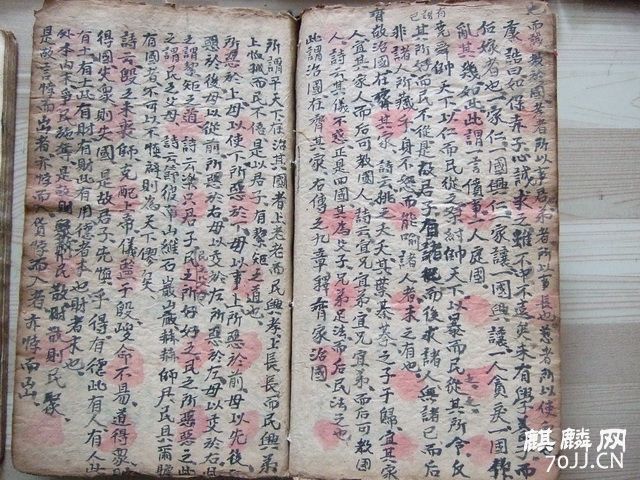 也而成教於國孝者所以事君弟者所以事長也慈者所以使
康誥曰如保赤子心誠求之雖不中不遠矣未有學養子而
后嫁者也一家仁一國興仁一家讓一國興讓一人貪戾一國作
亂其幾如此此謂一言僨事一人定國
堯舜帥天下以仁而民從之桀紂帥天下以暴而民從其所令反
其所好而民不從是故君子有諸己而后求諸人無諸己而后
非諸人所藏乎身不恕而能喻諸人者未之有也
故治國在齊其家詩云桃之夭夭其葉蓁蓁之子于歸宜其家
人宜其家人而后可教國人詩云宜兄宜弟宜兄宜弟而后可教國
人詩云其儀不忒正是四國其為父子兄弟足法而后民法之也
此謂治國在齊其家右傳之九章釋齊家治國
所謂平天下在治其國者上老老而民興孝上長長而民興弟
上恤孤而民不倍是以君子有絜矩之道也
所惡於上毋以使下所惡於下毋以事上所惡於前毋以先後
惡於後毋以從前所惡於右毋以交於左所惡於左毋以交於右此
之謂絜矩之道詩云樂只君子民之父母民之所好好之民之所惡惡之此
之謂民之父母詩云節彼南山維石巖巖赫赫師尹民具爾瞻
有國者不可以不慎辟則為天下僇矣
詩云殷之未喪師克配上帝儀監于殷峻命不易道得眾則
得國失眾則失國是故君子先慎乎德有德此有人有人此
有土有土此有財有財此有用德者本也財者末也
外本內末爭民施奪是故財聚則民散財散則民聚
是故言悖而出者亦悖而入貨悖而入者亦悖而出
麒麟网
70JJ.CN